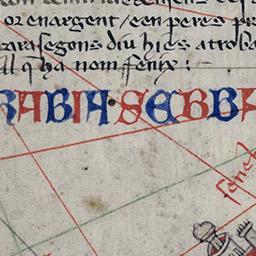 or enargent / e en peres pr
tara segons diu hies atroba
ll q ha nom fenix :
RABIA · SEBBA